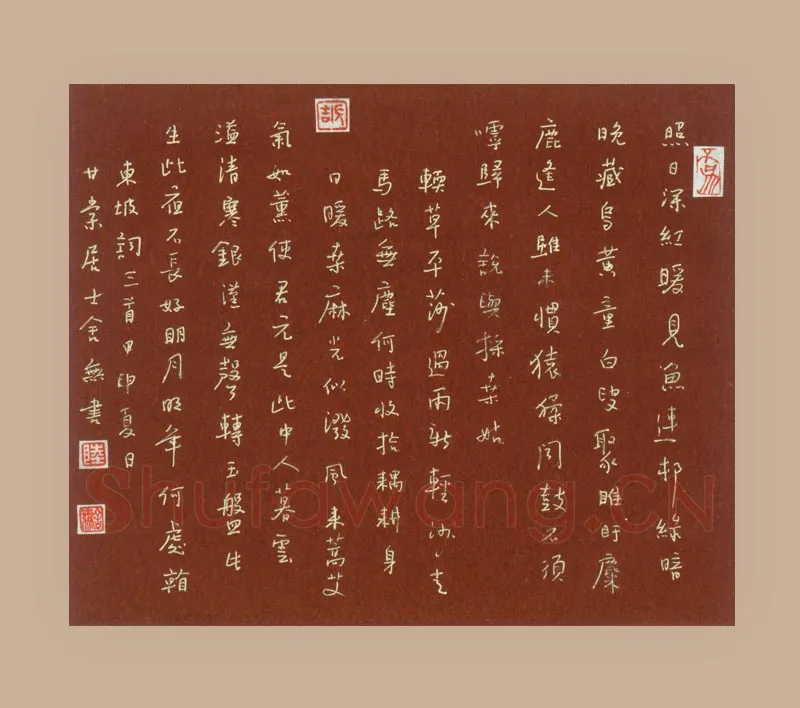 照日深紅暖見魚連邨綠暗
晚藏烏黃童白叟聚睢盱麋
鹿逢人雖未慣猿猱聞鼓不須
嘑歸來說與採桑姑
輭草平莎過雨新輕沙走
馬路無塵何時收拾耦耕身
日暖桑麻光似潑風來蒿艾
氣如薰使君元是此中人暮雲
溢清寒銀漢無聲轉玉盤此
生此夜不長好明月明年何處看
東坡詞三首甲申夏日
甘棠居士舍無書
Shufawang.CN